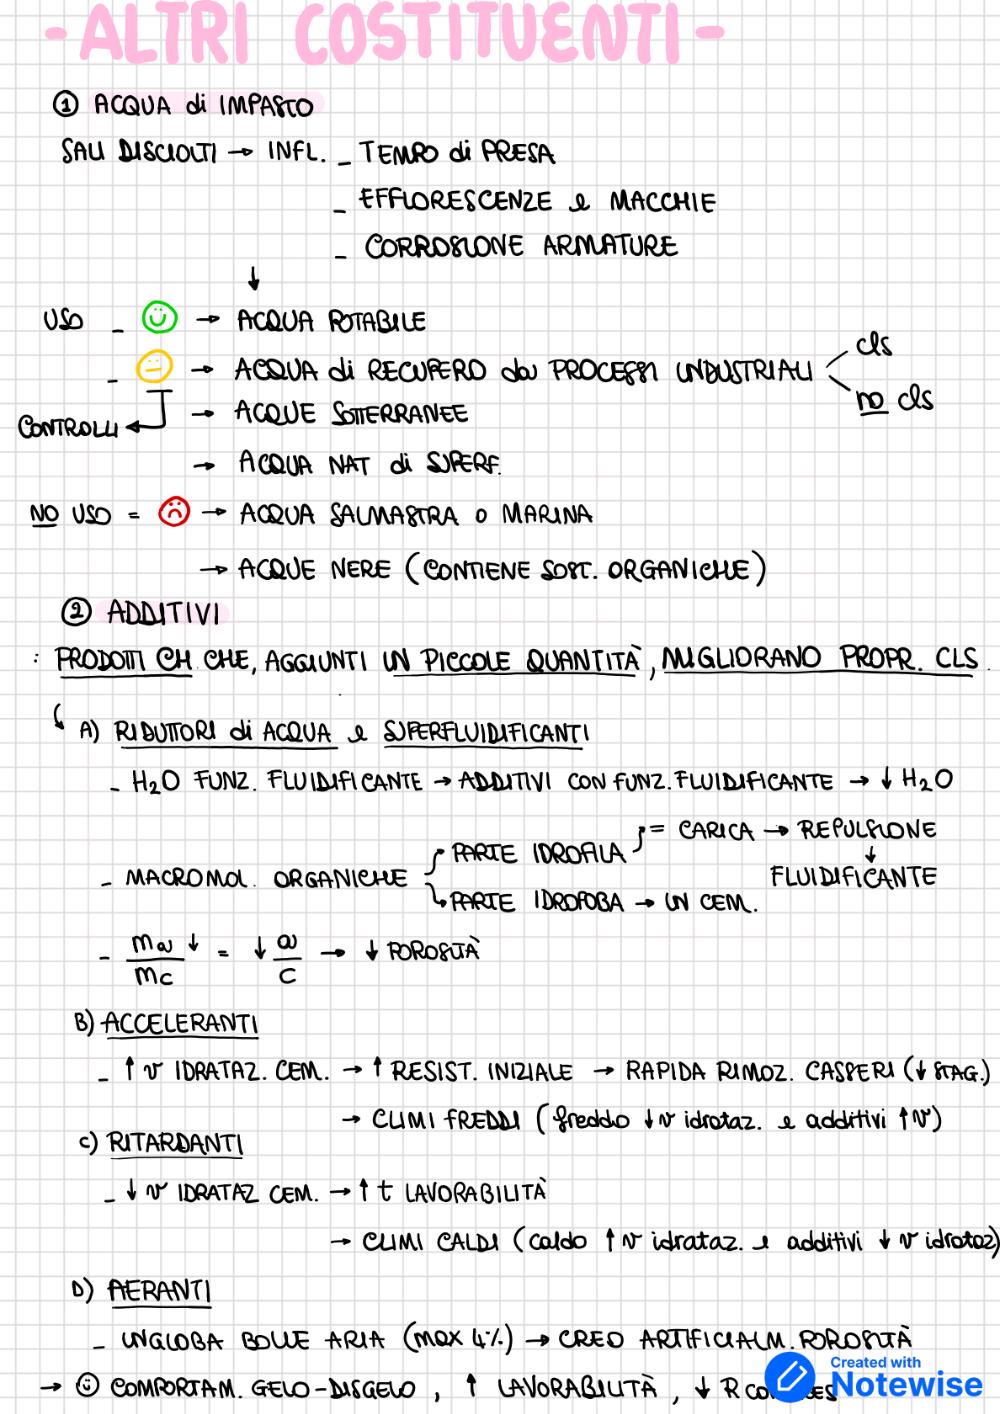 -ALTRI COSTITUENTI-
① ACQUA di IMPASTO
SALI DISCIOLTI → INFL. - TEMPO di PRESA
- EFFLORESCENZE e MACCHIE
- CORROSIONE ARMATURE
↓
USO - ☺ → ACQUA POTABILE
- 😐 → ACQUA di RECUPERO da PROCESSI INDUSTRIALI
cls
no cls
CONTROLLI ← → ACQUE SOTTERRANEE
→ ACQUA NAT di SUPERF.
NO USO = ☹ → ACQUA SALMASTRA o MARINA
→ ACQUE NERE (CONTIENE SOST. ORGANICHE)
② ADDITIVI
: PRODOTTI CH. CHE, AGGIUNTI IN PICCOLE QUANTITÀ, MIGLIORANO PROPR. CLS.
A) RIDUTTORI di ACQUA e SUPERFLUIDIFICANTI
- H₂O FUNZ. FLUIDIFICANTE → ADDITIVI CON FUNZ. FLUIDIFICANTE → ↓ H₂O
- MACROMOL. ORGANICHE
PARTE IDROFILA = CARICA → REPULSIONE
↓
FLUIDIFICANTE
PARTE IDROFOBA → IN CEM.
- ma ↓ / mc = ↓ a / c → ↓ POROSITÀ
B) ACCELERANTI
- ↑ v IDRATAZ. CEM. → ↑ RESIST. INIZIALE → RAPIDA RIMOZ. CASSERI (↓ STAG.)
→ CLIMI FREDDI (freddo ↓ v idrataz. e additivi ↑ v)
C) RITARDANTI
- ↓ v IDRATAZ CEM. → ↑ t LAVORABILITÀ
→ CLIMI CALDI (caldo ↑ v idrataz. e additivi ↓ v idrataz)
D) AERANTI
- INGLOBA BOLLE ARIA (max 4%) → CREO ARTIFICIALM. POROSITÀ
→ ☺ COMPORTAM. GELO-DISGELO, ↑ LAVORABILITÀ, ↓ R
Created with
Notewise